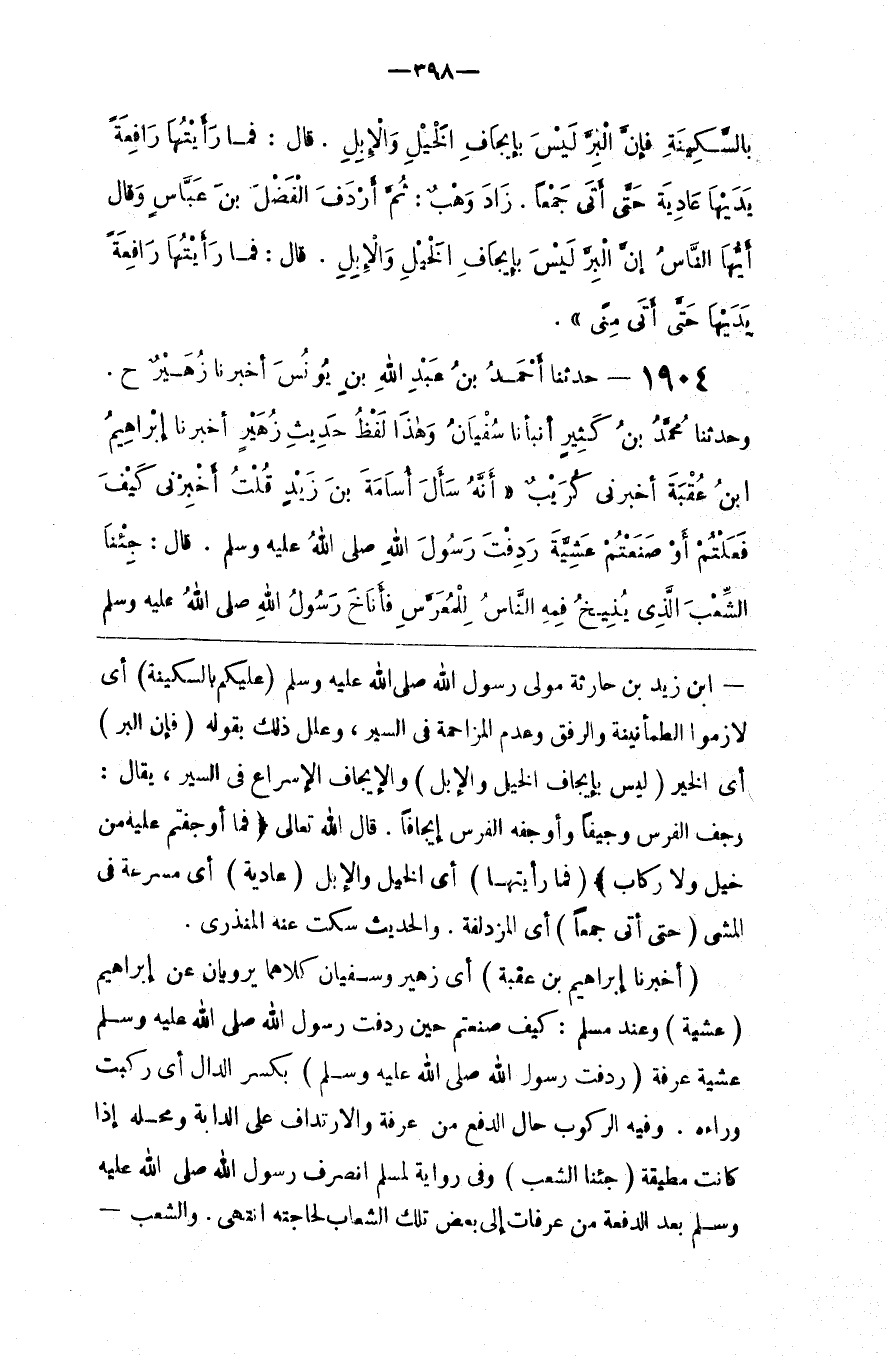 —٣٩٨—
بِالسَّكِينَةِ فإِنَّ الْبِرَّ لَيْسَ بِإِيجَافِ الْخَيْلِ وَالْإِبِلِ . قال : فَمـا رَأَيْتُهَا رَافِعَةً
يَدَيْهَا عَادِيَةً حَتَّى أَتَى جَمْعاً . زَادَ وَهْبٌ : ثُمَّ أَرْدَفَ الْفَضْلَ بنَ عَبَّاسٍ وَقال
أَيُّهَا النَّاسُ إِنَّ الْبِرَّ لَيْسَ بِإِيجَافِ الْخَيْلِ وَالْإِبِلِ . قال : فَمـا رَأَيْتُهَا رَافِعَةً
يَدَيْهَا حَتَّى أَتَى مِنًى » .
١٩٠٤ — حدثنا أَحْمَـدُ بنُ عَبْدِ اللهِ بنِ يُونُسَ أخبرنا زُهَـيْرٌ ح .
وحدثنا مُحمَّدُ بنُ كَثِيرٍ أنبأنا سُفْيَانُ وَهٰذَا لَفْظُ حَدِيثِ زُهَيْرٍ أخبرنا إبْرَاهِيمُ
ابنُ عُقْبَةَ أخبرنى كُرَيْبٌ « أَنَّهُ سَأَلَ أُسَامَةَ بنَ زَيْدٍ قُلْتُ أَخْبِرْنى كَيْفَ
فَعَلْتُمْ أَوْ صَنَعْتُمْ عَشِيَّةَ رَدِفْتَ رَسُولَ اللهِ صلى اللهُ عليه وسلم . قال : جِئْنَا
الشِّعْبَ الَّذِى يُنِيـخُ فِيهِ النَّاسُ لِلْمُعَرَّسِ فأَنَاخَ رَسُولُ اللهِ صلى اللهُ عليه وسلم
— ابن زيد بن حارثة مولى رسول الله صلى الله عليه وسلم (عليكم بالسكينة) أى
لازموا الطمأنينة والرفق وعدم المزاحمة فى السير ، وعلل ذلك بقوله ( فإن البر )
أى الخير ( ليس بإيجاف الخيل والإبل ) والإيجاف الإسراع فى السير ، يقال :
رجف الفرس وجيفاً وأوجفه الفرس إيجافاً . قال الله تعالى ﴿ فما أوجفتم عليه من
خيل ولا ركاب ﴾ ( فما رأيتهـا ) أى الخيل والإبل ( عادية ) أى مسرعة فى
المشى ( حتى أتى جمعاً ) أى المزدلفة . والحديث سكت عنه المنذرى .
( أخبرنا إبراهيم بن عقبة ) أى زهير وسـفيان كلاهما يرويان عن إبراهيم
( عشية ) وعند مسلم : كيف صنعتم حين ردفت رسول الله صلى الله عليه وسـلم
عشية عرفة ( ردفت رسول الله صلى الله عليه وسـلم ) بكسر الدال أى ركبت
وراءه . وفيه الركوب حال الدفع من عرفة والارتداف على الدابة ومحـله إذا
كانت مطيقة ( جئنا الشعب ) وفى رواية لمسلم انصرف رسول الله صلى الله عليه
وسـلم بعد الدفعة من عرفات إلى بعض تلك الشعاب لحاجته انتهى . والشعب —